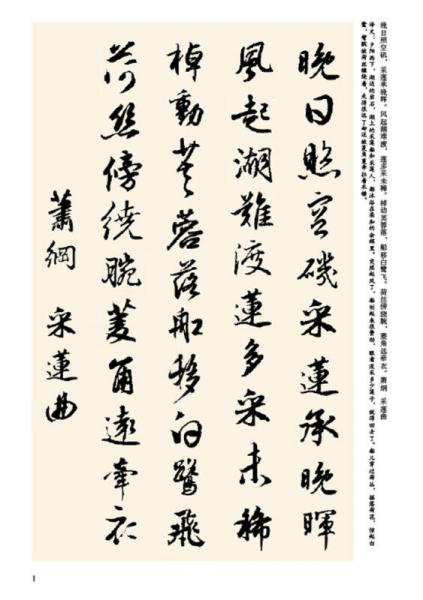 晚日照空矶，采莲承晚晖。风起湖难渡，莲多采未稀。棹动芙蓉落，船移白鹭飞。荷丝傍绕腕，菱角远牵衣。萧纲 采莲曲
晚日照空磯采蓮承晚暉
風起湖難渡蓮多采未稀
棹動芙蓉落船移白鷺飛
荷絲傍繞腕菱角遠牽衣
蕭綱 采蓮曲
1